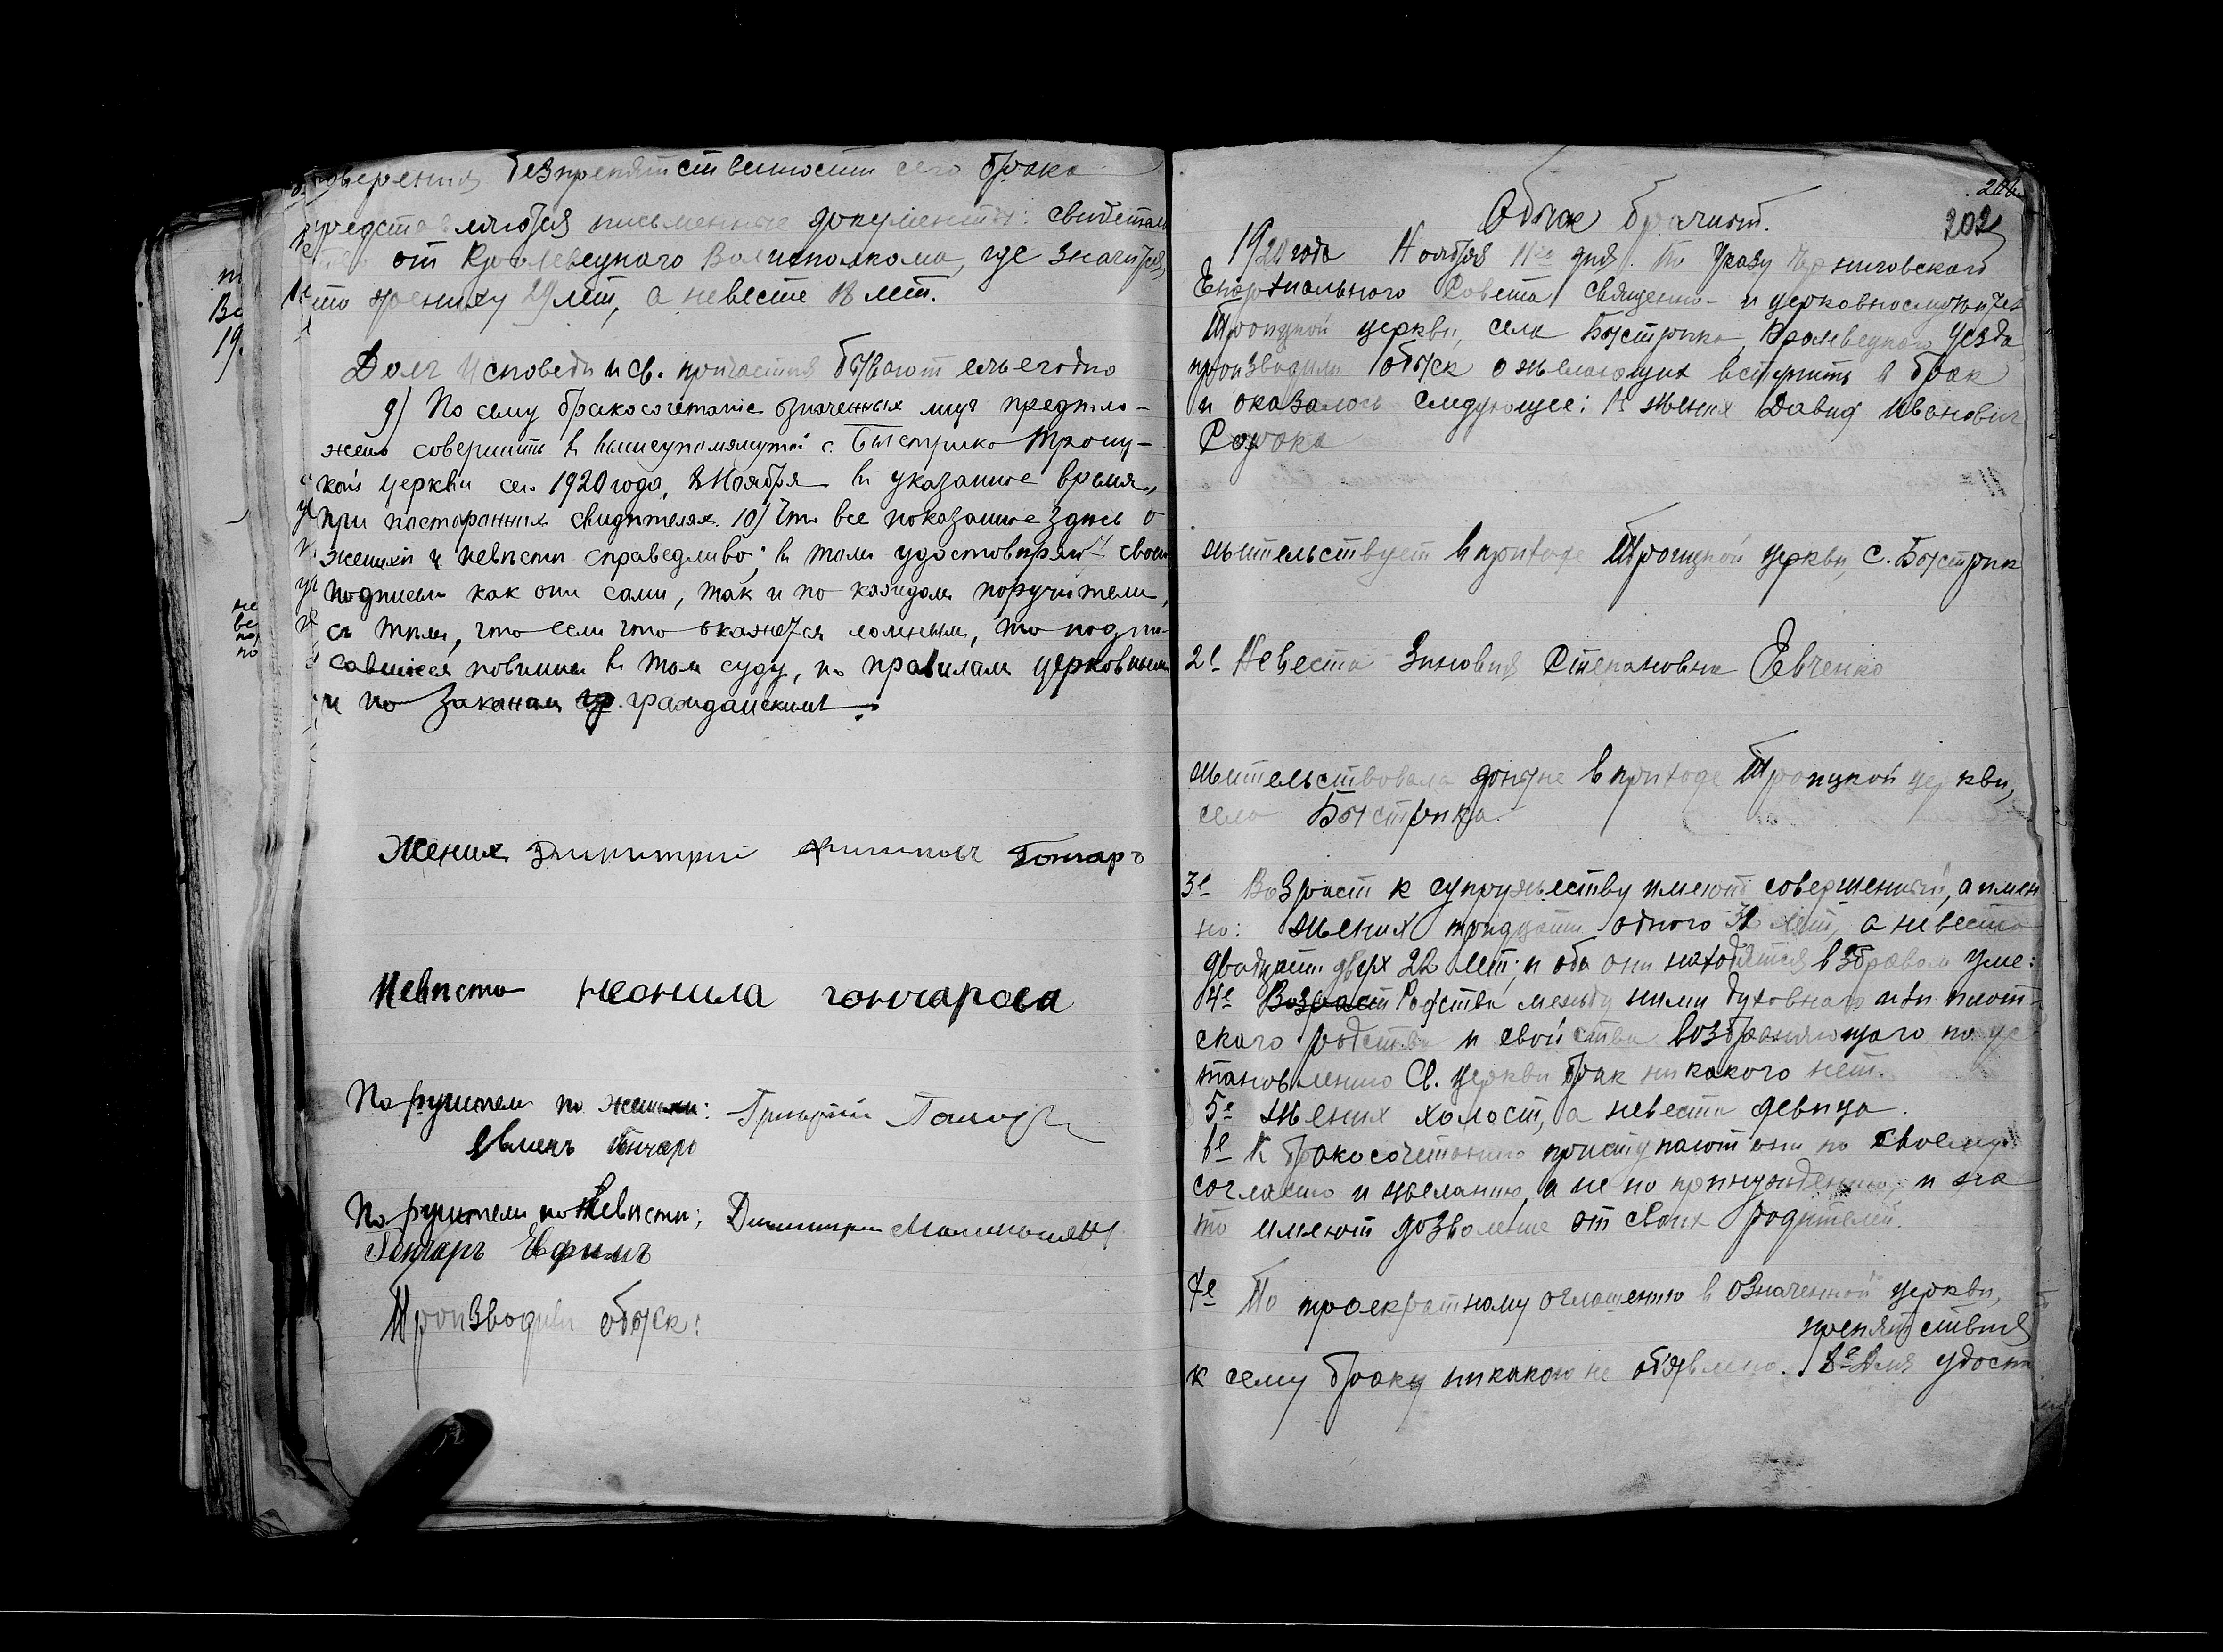 верения безпрепятственности сего брака
представляются письменные документы: свидетель
от Кролевецкаго Волисполкома, где значится,
что жениху 29 лет, а невесте 18 лет.
Долг исповеди и св. причастия бывают ежегодно
9) По сему бракосочетание означенных лиц предполо-
жено совершить в вышеупомянутой с. Быстрика Троиц-
кой церкви сего 1920 года, 8 Ноября в указанное время,
при посторонних свидетелях. 10) Что все показанное здесь о
женихе и невесте справедливо; в том удостоверяют свои
подписью как они сами, так и по каждом поручители,
с тем, что если что окажется ложным, то подпи-
савшиеся повинны в том суду, по правилам церковным
и по законам гр. гражданским.
Жених Димитрий Гончаръ
Невеста неонила гончарова
Поручители по женихе: Григорий
Гончаръ
Поручители по Невесте; Димитрий
Гончаръ Ефимъ
Производили обыск:
206
202
Обыск брачный.
1920 года Ноября 11го дня. По Указу Черниговского
Епархиального Совета священно- и церковнослужител
Троицкой церкви, села Быстрика, Кролевецкого уезда
производили обыск о желающих вступить в брак
и оказалось следующее: 1е жених Давид Иванович
жительствует в приходе Троицкой церкви, с. Быстрик
2е Невеста Зиновия Степановна Евченко
жительствовала доныне в приходе Троицкой церкви,
села Быстрика
3е Возраст к супружеству имеют совершенный, а имен
но: жених тридцати одного 31 лет, а невеста
двадцати двух 22 лет; и оба они находятся в здравом уме:
4е Возраст Родства между ними духовнаго или плот-
скаго родства и свойства возбраняющаго по ус
тановлению Св. церкви брак никакого нет.
5е Жених холост, а невеста девица.
6е К бракосочетанию приступают они по своему
согласию и желанию, а не по принуждению, и на
то имеют дозволение от своих родителей.
7е По троекратному оглашению в означенной церкви,
препятствия
к сему браку никакого не объявлено. 8е Для удост